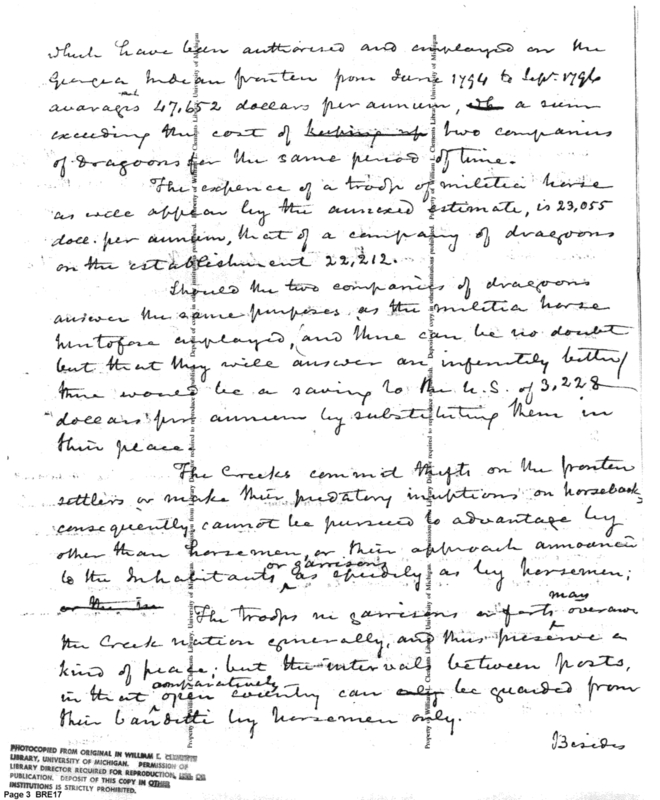 which have been authorised and employed on the
Georgia Indian frontier from June 1794 to Sept. 1796
avarages 47,652 dollars per annum, a sum
exceeding the cost of keeping up two companies
of dragoons for the same period of time.
The expence of a troop of militia horse
as will appear by the annexed estimate, is 23,055
doll. per annum, that of a company of dragoons
on the establishment 22,212.
Should the two companies of dragoons
answer the same purposes as the militia horse
heretofore employed, and there can be no doubt
but that they will answer an infenitely better,
there would be a saving to the U.S. of 3,228
dollars per annum by substituting them in
their place.
The Creeks commit thefts on the frontier
settlers or make their predatory irruptions on horseback,
consequently cannot be pursued to advantage by
other than horsemen, or their approach announced
to the Inhabitants or garrisons as speedily as by horsemen;
or the in
The troops in garrisons in forts may overawe
the Creek nation generally, and thus preserve a
kind of peace; but the intervals between posts,
in that comparatively open country can only be guarded from
their banditti by horsemen only.
Besides
Property of William L. Clements Library, University of Michigan
PHOTOCOPIED FROM ORIGINAL IN WILLIAM L. CLEMENTS
LIBRARY, UNIVERSITY OF MICHIGAN. PERMISSION OF
LIBRARY DIRECTOR REQUIRED FOR REPRODUCTION, USE OR
PUBLICATION. DEPOSIT OF THIS COPY IN OTHER
INSTITUTIONS IS STRICTLY PROHIBITED.
Page 3 BRE17